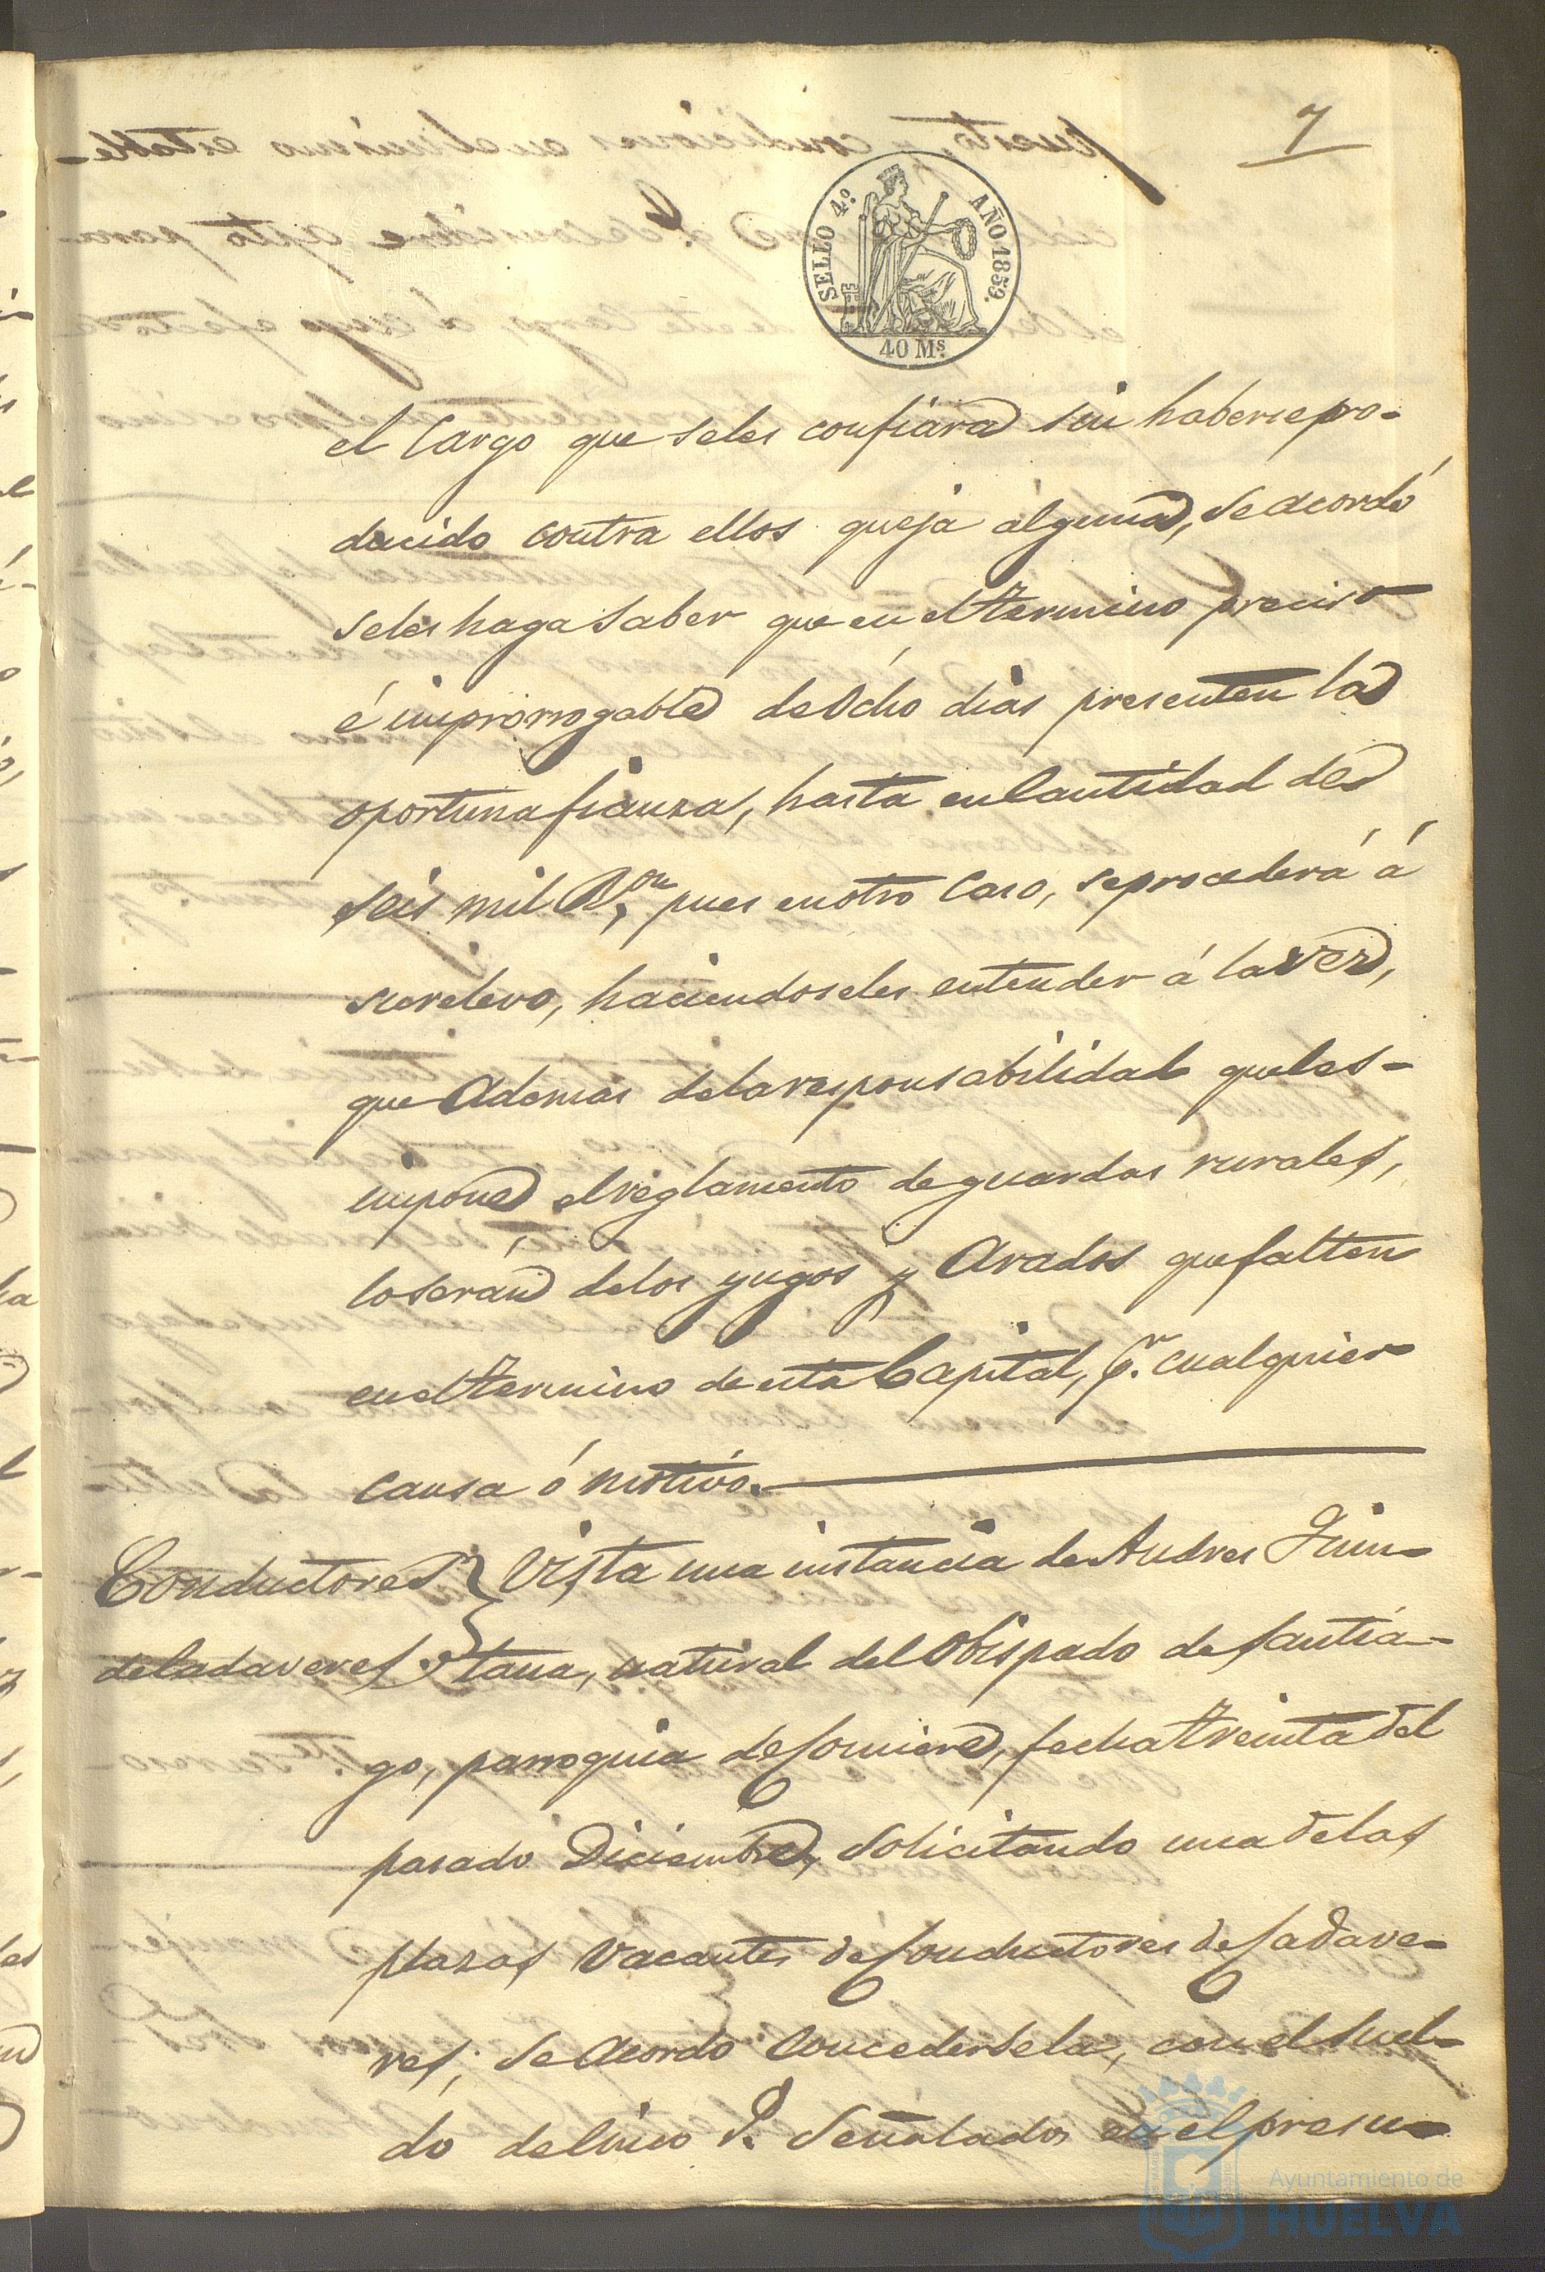 7
SELLO 4.º AÑO 1859.
40 Ms.
el Cargo que seles confiára sin haberse pro-
ducido contra ellos queja alguna, se acordó
seles haga saber que en el termino preciso
é improrrogable de Ocho dias presenten la
oportuna fianza, hasta en Cantidad de
seis mil R.on pues en otro Caso, se procederá á
su relevo, haciendoseles entender á la vez,
que Ademas dela responsabilidad queles-
impone el reglamento de guardas rurales,
lo serán delos yugos y Arados que falten
en el termino de esta Capital, p.r cualquier
causa ó motivo.
Conductores Vista una instancia de Andres Quin-
de Cadaveres. tana, natural del Obispado de Santia-
go, parroquia de fecha treinta del
pasado Diciembre, solicitando una delas
plazas Vacantes de Conductores de Cadave-
res, se Acordo Concedersela, con el suel-
do de Cinco r.s señalados en el presu-
Ayuntamiento de
HUELVA